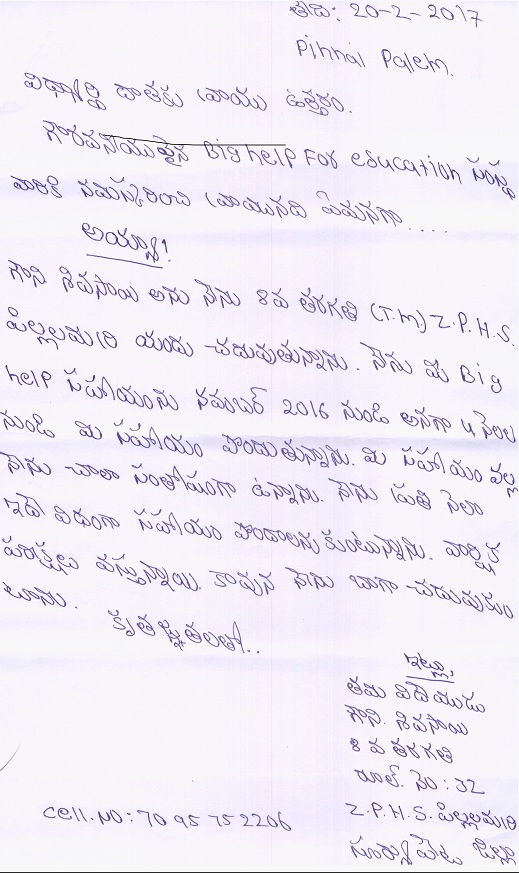 తేది: 20-2-2017
Pinnai Palem.
విధ్యార్ధి దాతకు వ్రాయు ఉత్తరం.
గౌరవనీయులైన Big help For education సంస్థ
వారికి నమస్కరించి వ్రాయునది ఏమనగా ....
అయ్యా!
గౌని శివసాయి అను నేను 8వ తరగతి (T.m) Z.P.H.S.
పిల్లలమర్రి యందు చదువుతున్నాను. నేను మీ Big
help సహాయంను నవంబర్ 2016 నుండి అనగా 4 నెలల
నుండి మీ సహాయం పొందుతున్నాను. మీ సహాయం వల్ల
నేను చాలా సంతోషంగా ఉన్నాను. నేను ప్రతి నెలా
ఇదే విధంగా సహాయం పొందాలను కుంటున్నాను. వార్షిక
పరీక్షలు వస్తున్నాయి. కావున నేను బాగా చదువుకుం
టాను.
కృతజ్ఞతలతో..
ఇట్లు,
తమ విదేయుడు
గౌని. శివసాయి
8 వ తరగతి
రూల్. నెం: 32
Z.P.H.S. పిల్లలమర్రి
సూర్యాపేట జిల్లా
cell.NO: 70 95 75 2206